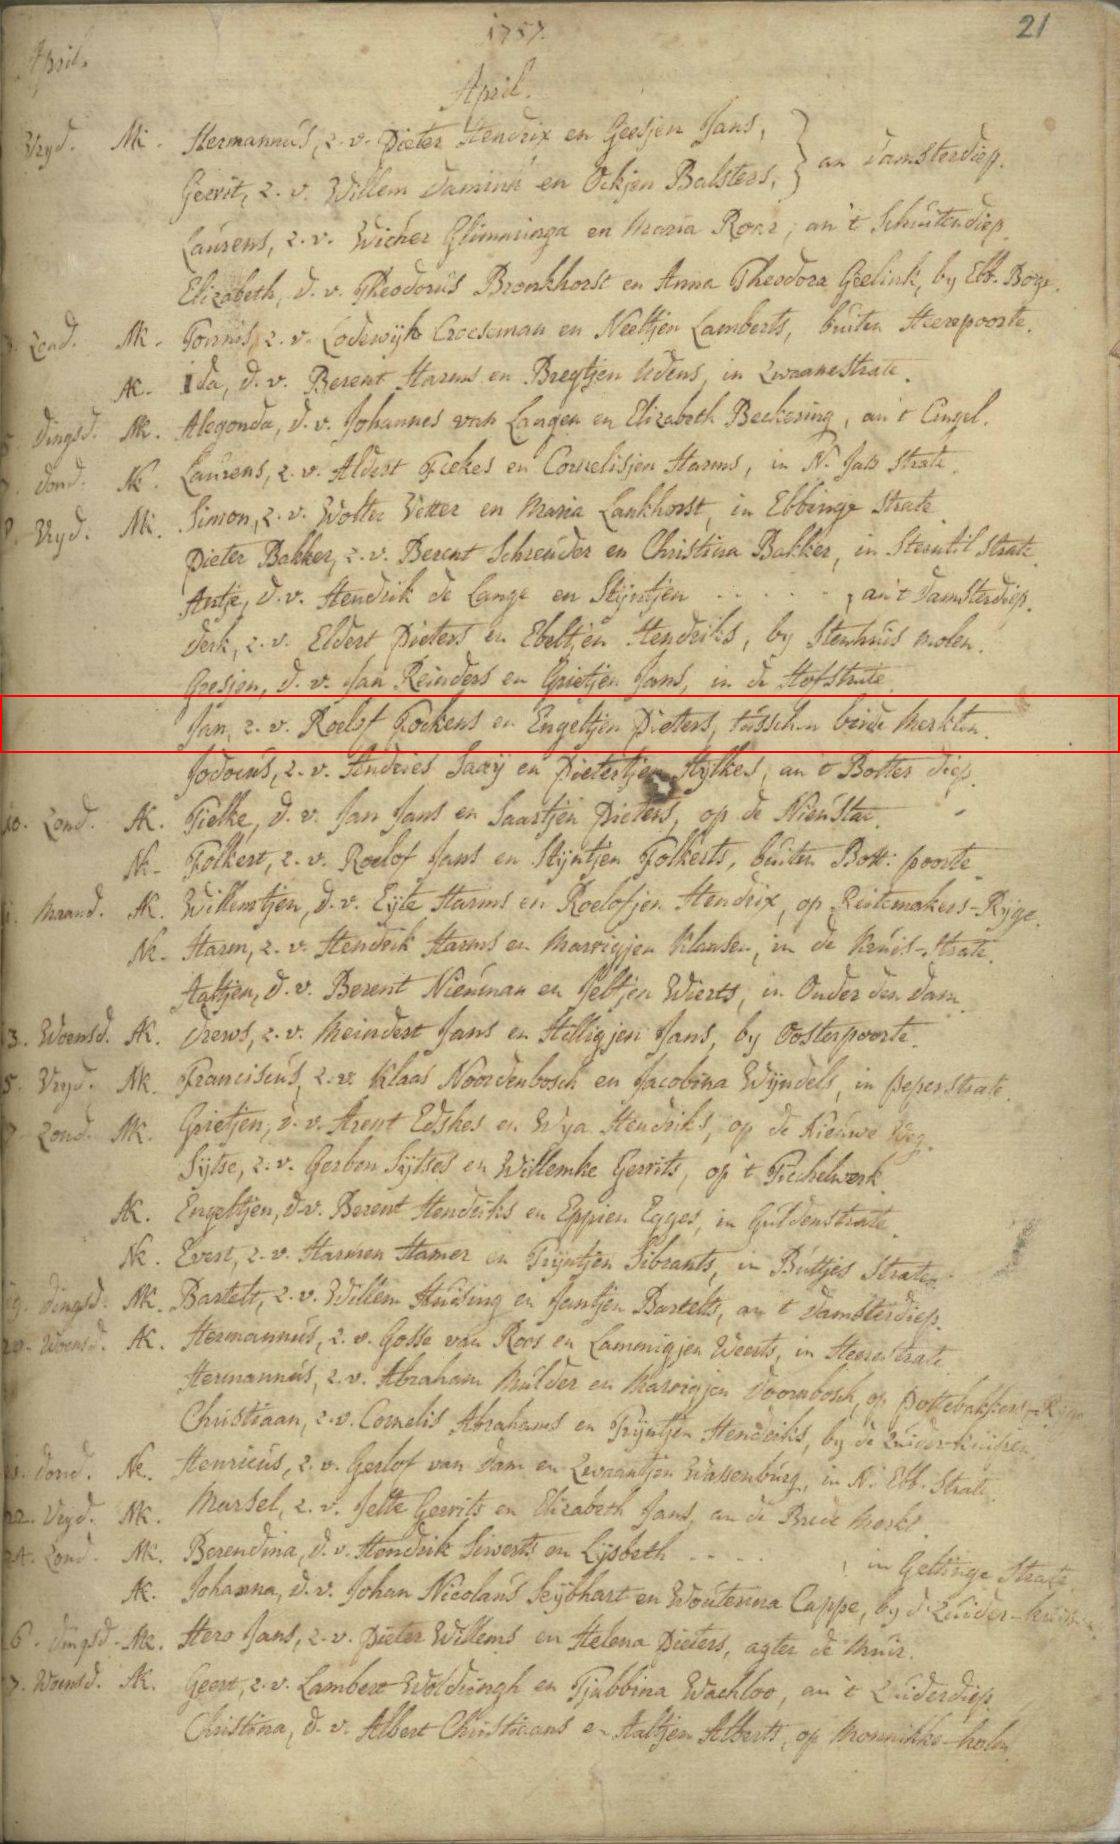 1757.
21
April.
April.
Vryd. Mk. Hermannus, z. v. Pieter Hendrix en Geesjen Jans,
Gerrit, z. v. Willem Damink en Ockjen Balsters, } an Damsterdiep.
Laurens, z. v. Wicher Glimminga en Maria Roar, an 't Schuitendiep.
Elizabeth, d. v. Theodorus Bronkhorst en Anna Theodora Geelink, by Ebb. Boge.
Zond. Nk. Tonnis, z. v. Lodewijk Croeseman en Neeltjen Lamberts, buiten Heerepoorte.
Ak. Ida, d. v. Berent Harms en Bregtjen Udens, in Zwaanestrate.
Dingsd. Nk. Alegonda, d. v. Johannes van Langen en Elizabeth Beckering, an 't Cingel.
Dond. Nk. Laurens, z. v. Aldert Fockes en Cornelisjen Harms, in N. Jats strate.
8. Vryd. Mk. Simon, z. v. Wolter Vetter en Maria Lankhorst, in Ebbinge strate.
Pieter Bakker, z. v. Berent Schreuder en Christina Bakker, in Steentil strate.
Antje, d. v. Hendrik de Lange en Stijntjen . . . . . , an 't Damsterdiep.
Derk, z. v. Eldert Pieters en Ebeltjen Hendriks, by Stenhuis molen.
Geesjen, d. v. Jan Reinders en Grietjen Jans, in de Hofstrate.
Jan, z. v. Roelof Fockens en Engeltjen Pieters, tusschen beide Merkten.
Jodocus, z. v. Andries Saaij en Pietertjen Hylkes, an 't Botter diep.
10. Zond. Ak. Tielke, d. v. Jan Jans en Saartjen Pieters, op de Nieustat.
Nk. Folkert, z. v. Roelof Jans en Stijntjen Folkerts, buiten Bott: poorte.
11. Maand. Ak. Willemtjen, d. v. Eijte Harms en Roelofjen Hendrix, op Reitemakers-Ryge.
Nk. Harm, z. v. Hendrik Harms en Marrigjen Klaasen, in de Kruis-strate.
Aaltjen, d. v. Berent Nieuman en Jeltjen Wierts, in Onder den dam.
13. Woensd. Ak. Drews, z. v. Meindert Jans en Hilligjen Jans, by Oosterpoorte.
5. Vryd. Nk. Franciscus, z. v. Klaas Noordenbosch en Jacobina Wijndels, in Peperstrate.
Zond. Mk. Grietjen, d. v. Arent Edskes en Wya Hendriks, op de Nieuwe Weg.
Sijtse, z. v. Gerben Sijtses en Willemke Gerrits, op 't Tichelwerk.
Ak. Engeltjen, d. v. Berent Hendriks en Eppien Egges, in Guldenstrate.
Nk. Evert, z. v. Harmen Hamer en Trijntjen Sibrants, in Buttjes strate.
19. Dingsd. Mk. Bartelt, z. v. Willem Huising en Jantjen Bartelts, an 't Damsterdiep.
20. Woensd. Ak. Hermannus, z. v. Gosse van Roos en Lammigjen Weerts, in Heerestrate.
Hermannus, z. v. Abraham Mulder en Marrigjen Doornbosch, op Pottebakkers-Ryge
Christiaan, z. v. Cornelis Abrahams en Trijntjen Hendriks, by de Zuider-kuipen.
Dond. Nk. Henricus, z. v. Gerlof van Dam en Zwaantjen Wassenburg, in N. Ebb. strate.
22. Vryd. Mk. Marsel, z. v. Jelte Gerrits en Elizabeth Jans, an de Brede Merkt.
24. Zond. Mk. Berendina, d. v. Hendrik Siwerts en Lijsbeth . . . . , in Gelkinge Strate.
Ak. Johanna, d. v. Johan Nicolaus Seijbhart en Wouterina Cappe, by d. Zuider-
6. Dingsd. Mk. Hero Jans, z. v. Pieter Willems en Helena Pieters, agter de Muir.
7. Woensd. Ak. Geert, z. v. Lambert Woldringh en Tjabbina Wachloo, an 't Zuiderdiep.
Christina, d. v. Albert Christiaans en Aaltjen Alberts, op Monnikke-holm.